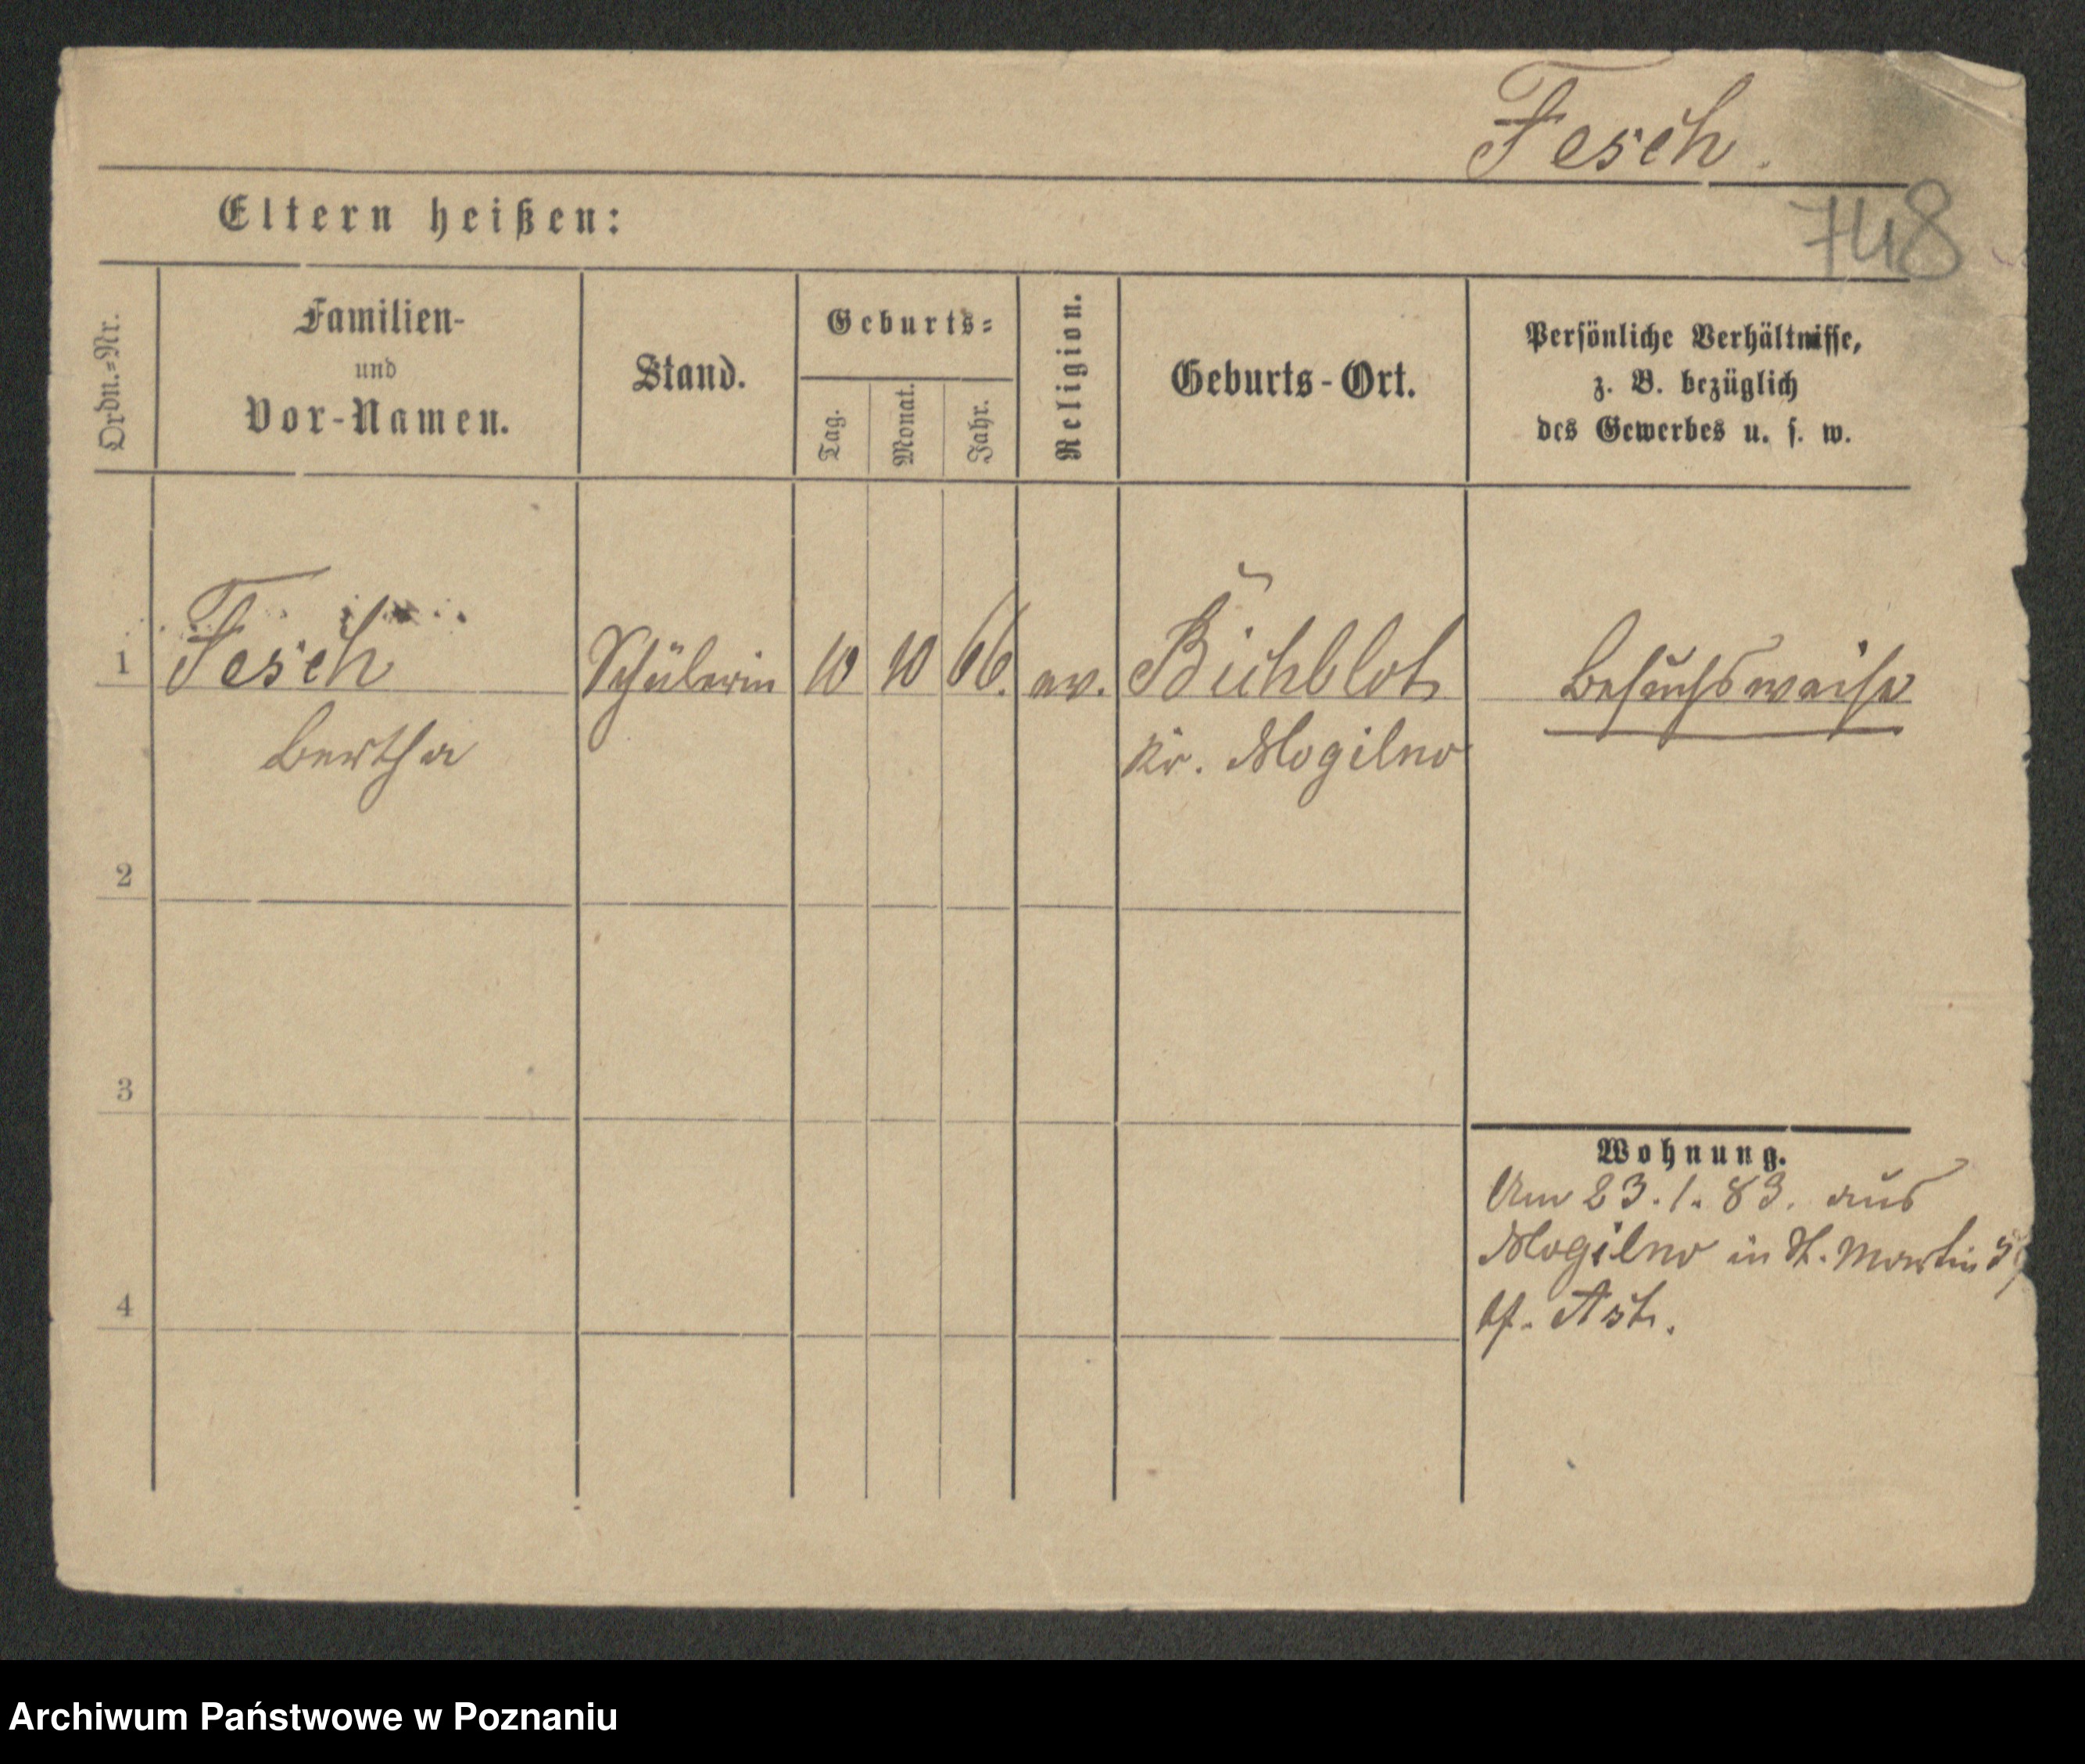 Fesch.
748
Eltern heißen:
Ordn.-Nr.
Familien-
und
Vor-Namen.
Stand.
Geburts-
Tag.
Monat.
Jahr.
Religion.
Geburts-Ort.
Persönliche Verhältnisse,
z. B. bezüglich
des Gewerbes u. s. w.
1 Fesch Schülerin 10 10 66. ev. besuchsweise
Bertha Kr. Mogilno
2
3
4
Wohnung.
Am 23.1.83. aus
Mogilno in St. Martin
bei
Archiwum Państwowe w Poznaniu